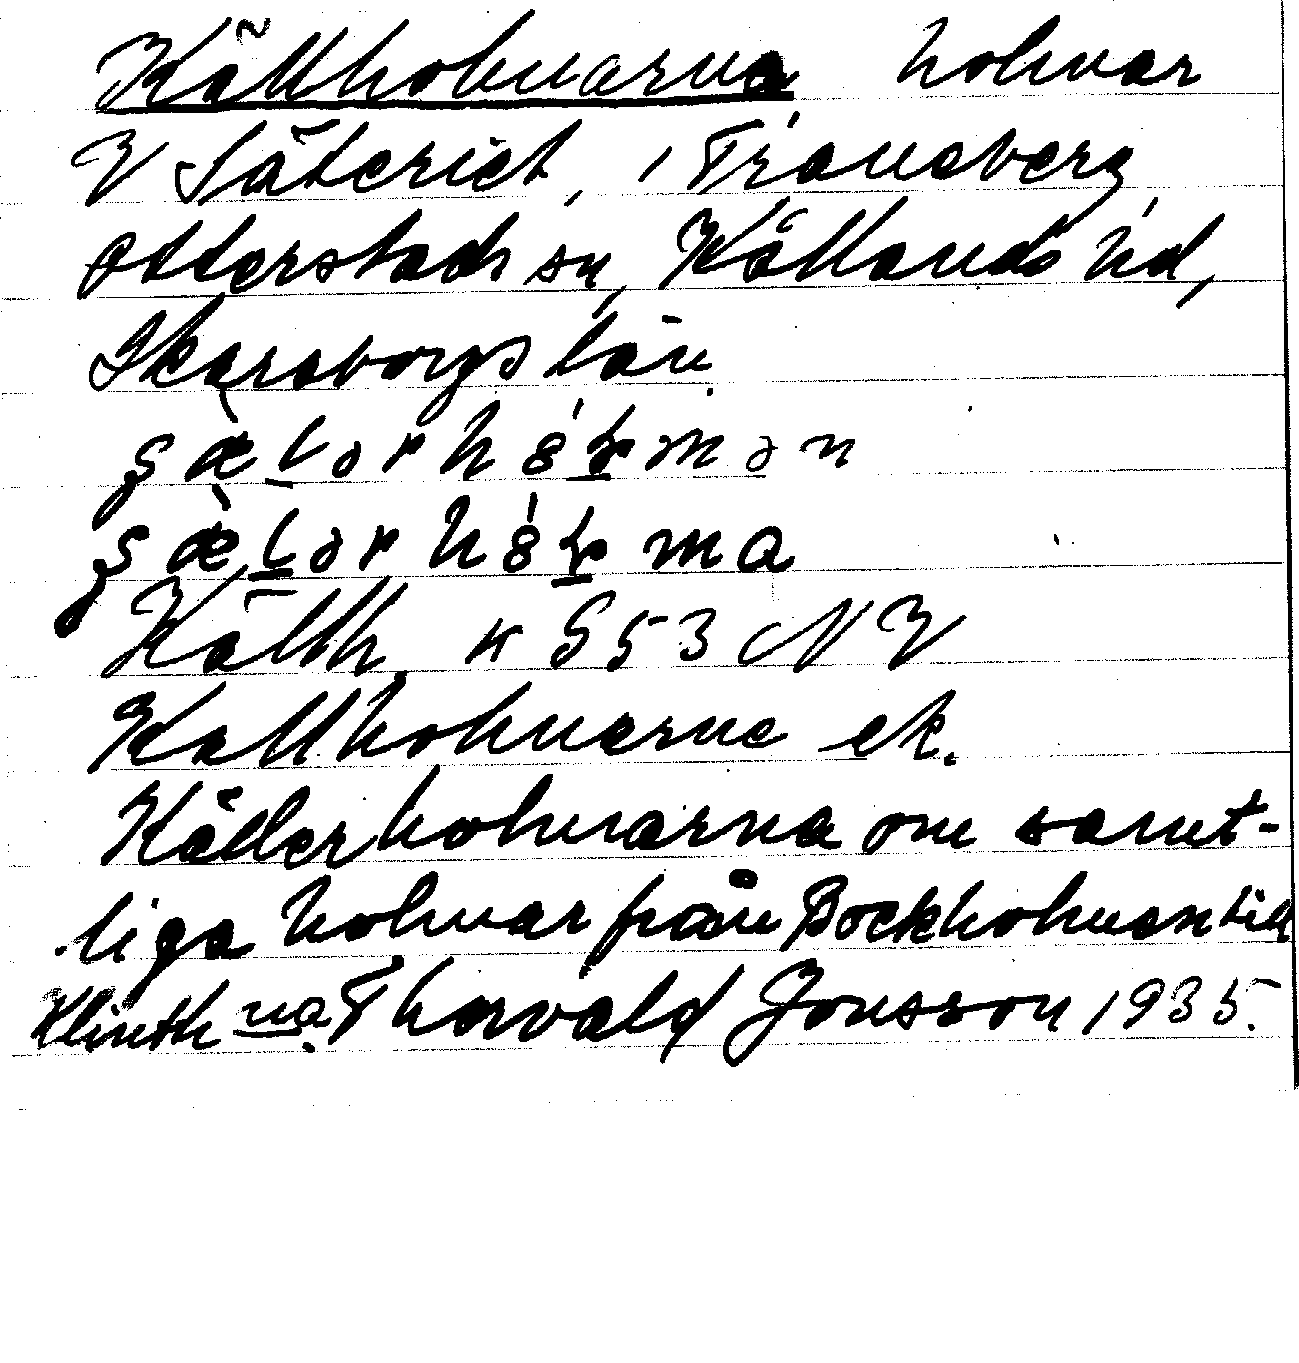 Källholmarna holmar
V Säteriet, i Traneberg,
Otterstads sn, Kållands hd,
Skaraborgs län.
Källh. K 553 NV
Kallholmarne ek.
Källerholmarna om samt-
liga holmar från Bockholmen till
Klinth na. Thorvald Jonsson 1935.